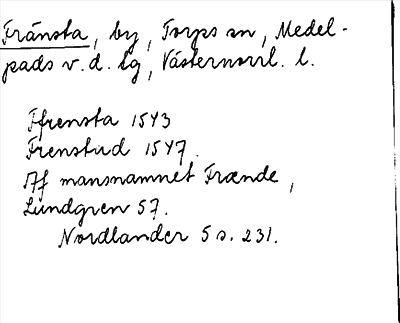 Fränsta, by, Torps sn, Medel-
pads v. d. lg, Västernorrl. l.
Ffrensta 1543
Frenstad 1547.
Af mansnamnet Frænde,
Lundgren 57.
Nordlander 5 s. 231.